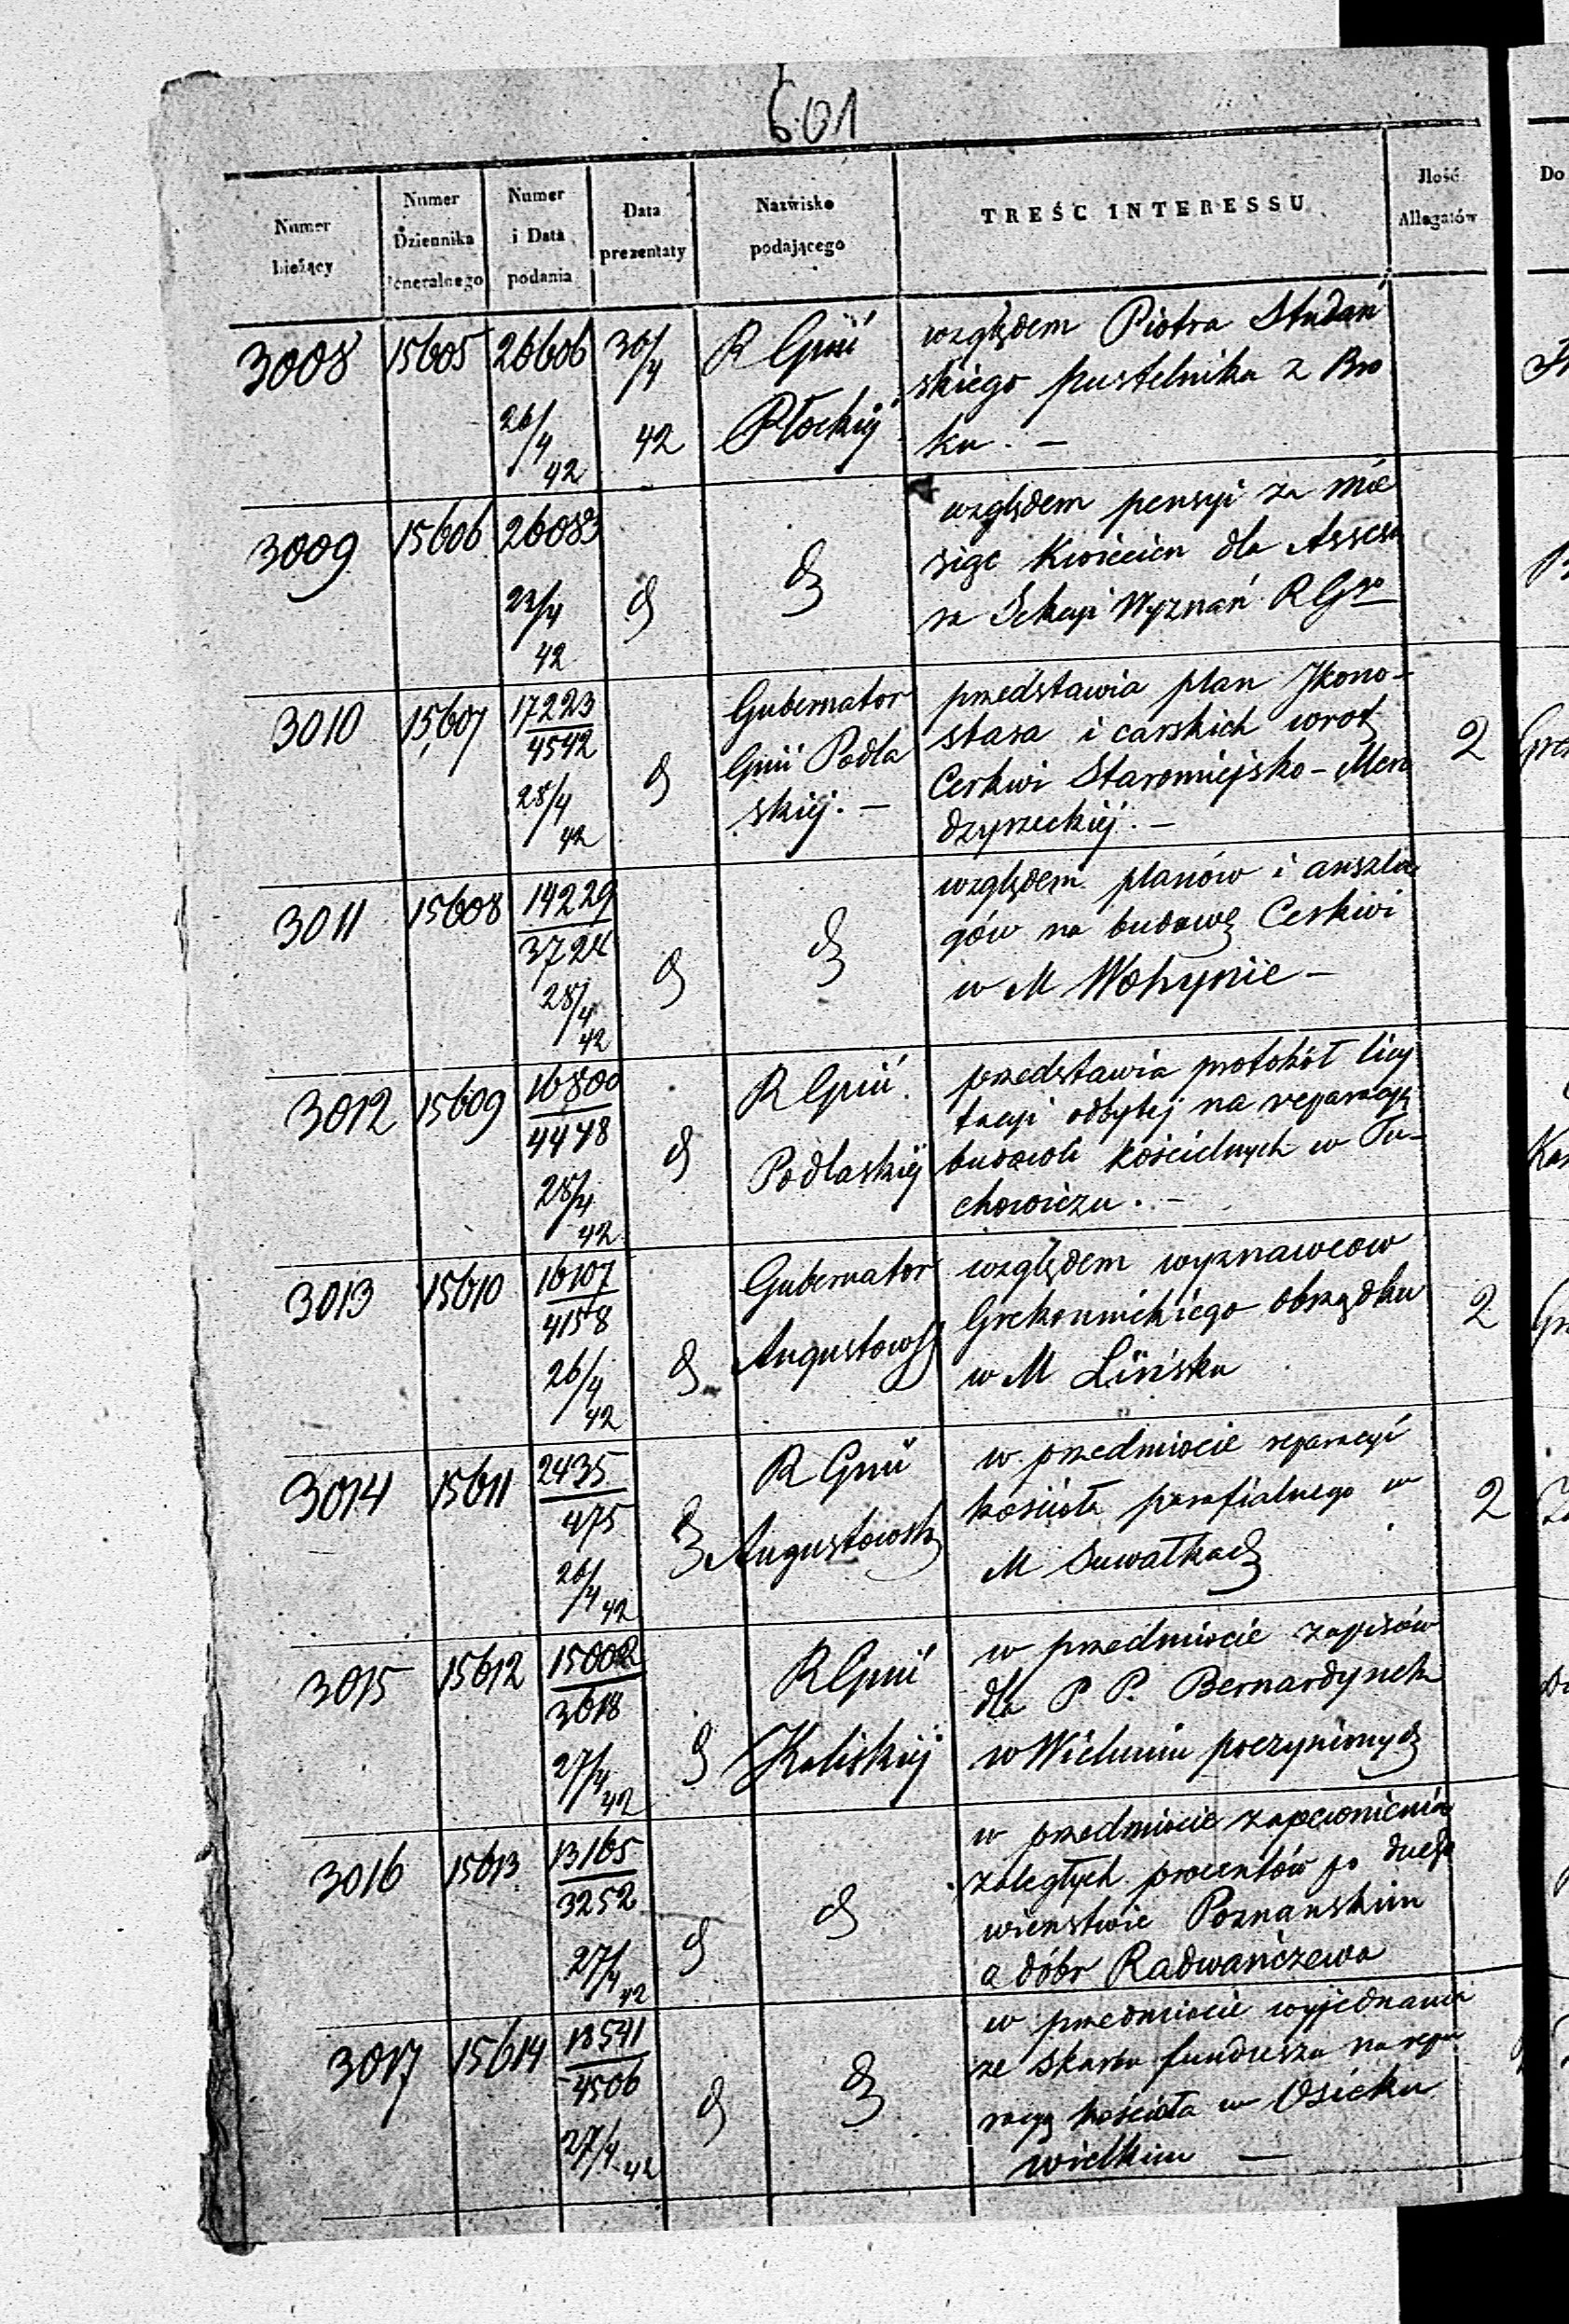 601
Numer bieżący
Numer Dziennika Generalnego
Numer i Data podania
Data prezentaty
Nazwisko podającego
TREŚC INTERESSU
Ilość Allegatów
Do
3008 15605 26606 26/4 42 30/4 42
R Gpnii
Płockiej
względem Piotra Studań
skiego pustelnika z Bro
ku. —
3009 15606 26083 22/4 42 d d
względem pensyi za mie
siąc Kwiecien dla Asseso
ra Sekcyi Wyznań R Ggo
3010 15607 17223/4542 28/4 42 d
Gubernator
Gpnii Podla
skiej. —
przedstawia plan Jkono-
stasa i carskich wrot
Cerkwi Staromiejsko-Men
dzyrzeckiej. —
2
3011 15608 14229/3724 28/4 42 d d
względem planów i anszla
gów na budowę Cerkwi
w M Wohynie —
3012 15609 16800/4478 28/4 42 d
R Gpnii
Podlaskiej
przedstawia protokół licy
tacyi odbytej na reparacyą
budowli kościelnych w Tu-
chowiczu. —
3013 15610 16107/4158 26/4 42 d
Gubernator
Augustows
względem wyznawcow
Grekounickiego obrządku
w M Lińsku
2
3014 15611 2435/475 26/4 42 d
R Gpnii
Augustowsk
w przedmiocie reparacyi
kościoła parafialnego w
M Suwałkach
2
3015 15612 15002/3618 27/4 42 d
R Gpnii
Kaliskiej
w przedmiocie zapisów
dla P P. Bernardynek
w Wieluniu poczynionych
3016 15613 13165/3252 27/4 42 d d
w przedmiocie zapewnienia
zaległych procentów po ducho
wieństwie Poznańskim
a dóbr Radwańczewa
3017 15614 18541/4506 27/4 42 d d
w przedmiocie wyjednania
ze skarbu funduszu na repa
racyą kościoła w Osieku
wielkim —